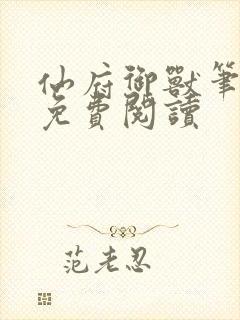 仙府御獸筆
免費閱讀
范老忍